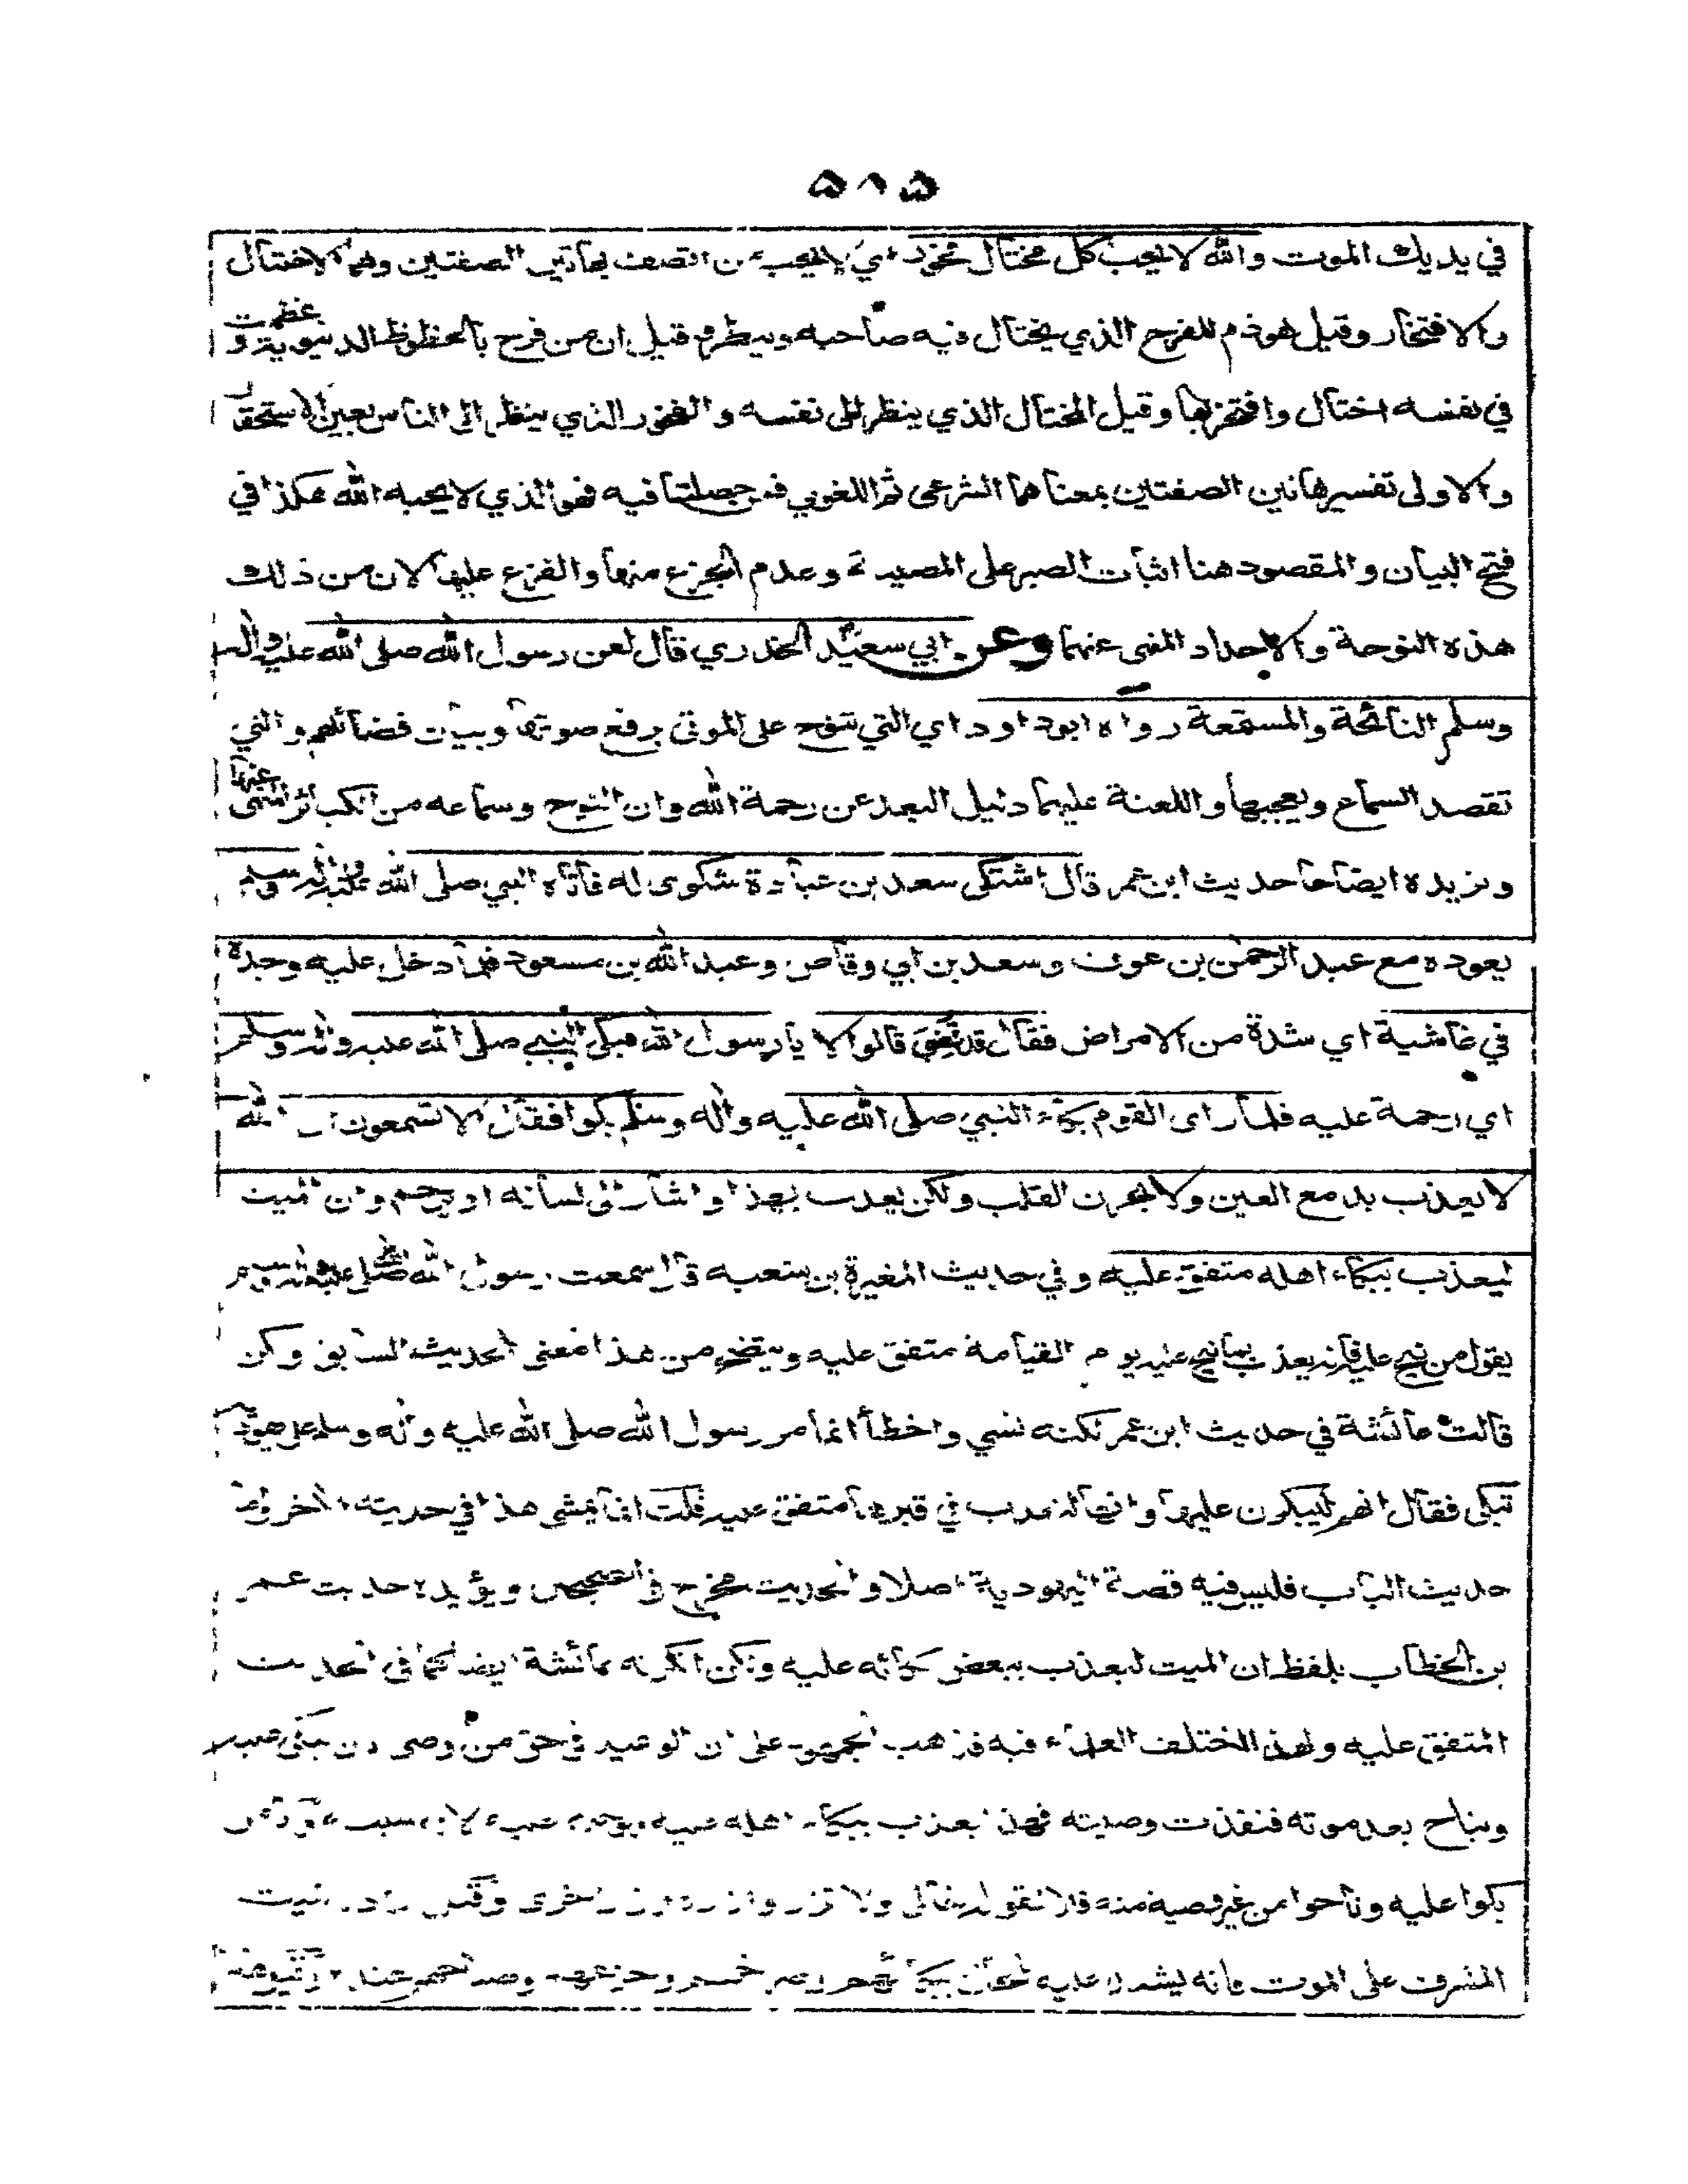 ٥٨٥
في يديك الموت والله لا يحب كل مختال فخور اي لا يحب من اتصف بهاتين الصفتين وهما الاختيال
والافتخار وقيل هو ذم للفرح الذي يختال فيه صاحبه ويبطر وقيل ان من فرح بالحظوظ الدنيوية وعظمت
في نفسه اختال وافتخر بها وقيل المختال الذي ينظر الى نفسه والفخور الذي ينظر الى الناس بعين الاستحقار
والاولى تفسير هاتين الصفتين بمعناهما الشرعي ثم اللغوي فمن حصلتا فيه فهو الذي لا يحبه الله هكذا في
فتح البيان والمقصود هنا اثبات الصبر على المصيبة وعدم الجزع منها والفزع عليها لان من ذلك
هذه النوحة والاحداد المنهى عنهما وعن ابي سعيد الخدري قال لعن رسول الله صلى الله عليه واله
وسلم النائحة والمستمعة رواه ابوداود اي التي تنوح على الموتى برفع صوتها وبيان فضائلهم والتي
تقصد السماع ويعجبها واللعنة عليهما دليل البعد عن رحمة الله وان النوح وسماعه من الكبائر المنهى عنها
ونزيده ايضاحا حديث ابن عمر قال اشتكى سعد بن عبادة شكوى له فاتاه النبي صلى الله عليه واله وسلم
يعوده مع عبد الرحمن بن عوف وسعد بن ابي وقاص وعبد الله بن مسعود فلما دخل عليه وجدة
في غاشية اي شدة من الامراض فقال قد قضى قالوا لا يا رسول الله فبكى النبي صلى الله عليه واله وسلم
اي رحمة عليه فلما راى القوم بكاء النبي صلى الله عليه واله وسلم بكوا فقال الا تسمعون ان الله
لا يعذب بدمع العين ولا بحزن القلب ولكن يعذب بهذا واشار الى لسانه او يرحم وان الميت
ليعذب ببكاء اهله متفق عليه وفي حديث المغيرة بن شعبه قال سمعت رسول الله صلى الله عليه واله وسلم
يقول من نيح عليه فانه يعذب بما نيح عليه يوم القيامة متفق عليه ويتضح من هذا معنى الحديث السابق ولكن
قالت عائشة في حديث ابن عمر لكنه نسي واخطأ انما مر رسول الله صلى الله عليه واله وسلم على يهودية
تبكى فقال انهم ليبكون عليها وانها لتعذب في قبرها متفق عليه قلت انما يمشى هذا في حديثه الاخر واما
حديث الباب فليس فيه قصة اليهودية اصلا والحديث مخرج في الصحيحين ويؤيده حديث عمر
بن الخطاب بلفظ ان الميت ليعذب ببعض بكائه عليه ولكن انكرته عائشة ايضا كما في الحديث
المتفق عليه ولهذا اختلف العلماء فيه فذهب الجمهور على ان الوعيد في حق من اوصى بان يبكى عليه
ويناح بعد موته فنفذت وصيته فهذا يعذب ببكاء اهله عليه ونوحهم عليه لانه بسببه
بكوا عليه وناحوا من غير وصية منه فلا لقوله تعالى ولا تزر وازرة وزر اخرى وقيل اراد الميت
المشرف على الموت فانه ليشتد عليه الحال ببكائهم